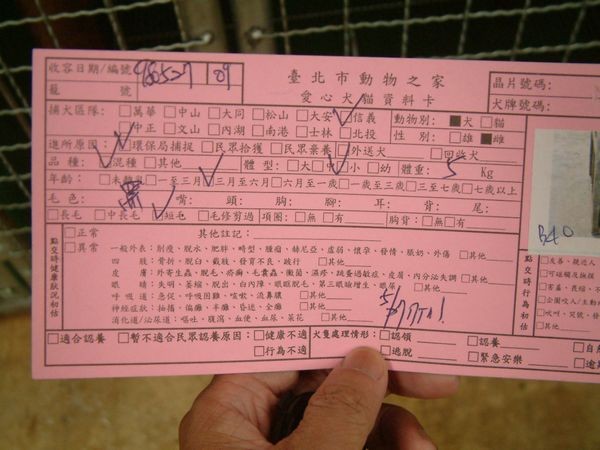 臺北市動物之家
愛心犬貓資料卡
收容日期/編號 980527 09
晶片號碼:
籠號
犬牌號碼:
捕犬區隊: □萬華□中山□大同□松山□大安□信義
動物別: ■犬□貓
□中正□文山□內湖□南港□士林□北投
性別: □雄■雌
進所原因: □環保局捕捉□民眾拾獲□民眾棄養□外送犬
品種: □混種□其他
體型: □大□中□小□幼 體重: 5 Kg
年齡: □未離乳□一至三月□三月至六月□六月至一歲□一歲至三歲□三至七歲□七歲以上
毛色: 黑 嘴: 頭: 胸: 腳: 耳: 背: 尾:
□長毛□中長毛□短毛□毛修剪過 項圈: □無□有 胸背: □無□有
點交時健康狀況初估
□正常 其他註記:
□異常
一般外表: 削瘦、脫水、肥胖、畸型、腫瘤、赫尼亞、虛弱、懷孕、發情、脹奶、外傷 □其他
四肢: 骨折、脫臼、截肢、發育不良、跛行 □其他
皮膚: 外寄生蟲、脫毛、疥癬、毛囊蟲、黴菌、濕疹、跳蚤過敏症、皮屑、內分泌失調 □其他
眼睛: 失明、萎縮、脫出、白內障、眼瞼脫毛、第三眼瞼增生、眼屎 □其他
呼吸道: 急促、呼吸困難、咳嗽、流鼻膿 □其他
神經症狀: 抽搐、偏癱、半癱、昏迷、全癱 □其他
消化道/泌尿道: 嘔吐、腹瀉、血便、血尿、茶花 □其他
點交時行為初估
B40
□適合認養 □暫不適合民眾認養原因: □健康不適
□行為不適
犬隻處理情形: □認領 □認養
□逃脫 □緊急安樂